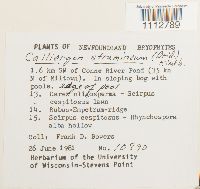 1112789
PLANTS OF NEWFOUNDLAND BRYOPHYTES
Calliergon stramineum (Brid.)
Kindb.
1.6 km SW of Conne River Pond (15 km
N of Miltown). In sloping bog with
pools. edge of pool
13. Carex oligosperma - Scirpus
cespitosus lawn
14. Rubus-Empetrum-ridge
15. Scirpus cespitosus - Rhynchospora
alba hollow
Coll: Frank D. Bowers
26 June 1981 No. 10990
Herbarium of the University
of Wisconsin-Stevens Point